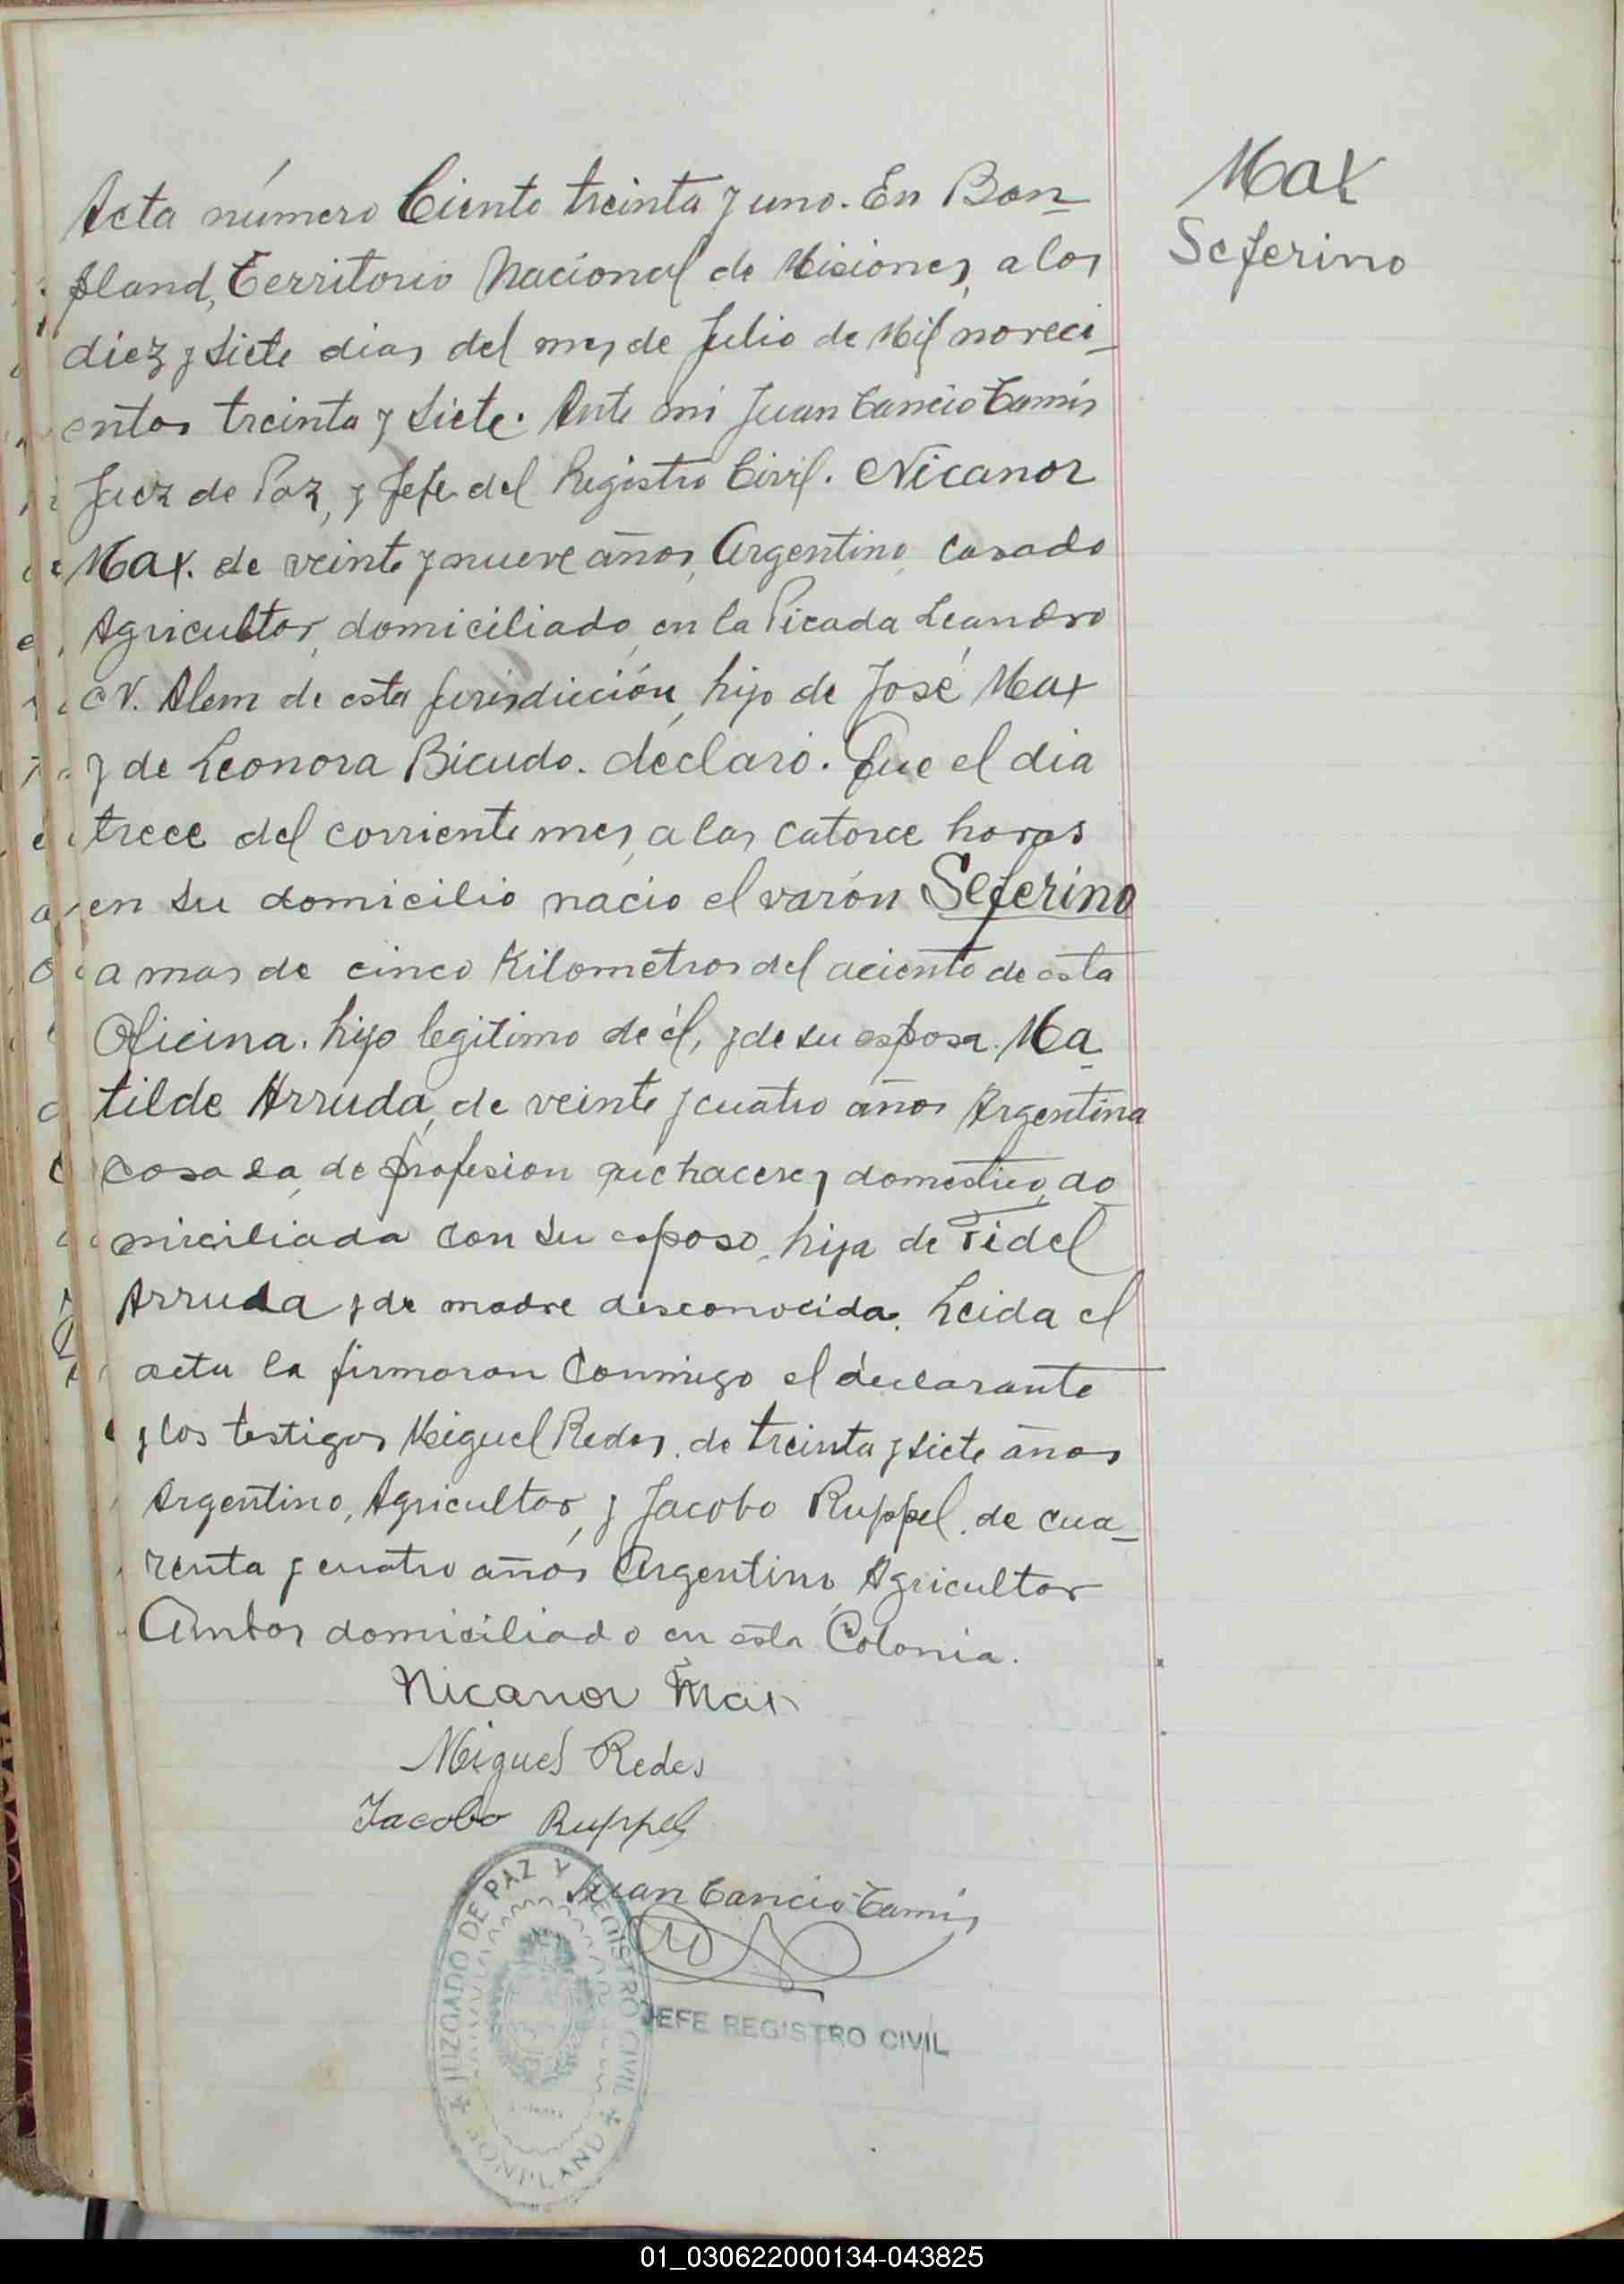 Max
Seferino
Acta número Ciento treinta y uno. En Bon-
pland, Territorio Nacional de Misiones, a los
diez y siete dias del mes de Julio de Mil noveci-
entos treinta y siete. Ante mi Juan Cancio Tamis
Juez de Paz, y Jefe del Registro Civil. Nicanor
Max. de veinte y nueve años, Argentino, casado
Agricultor, domiciliado, en la Picada Leandro
N. Alem de esta jurisdicción, hijo de José Max
y de Leonora Bicudo. declaró. Que el dia
trece del corriente mes, a las catorce horas
en su domicilio nacio el varón Seferino
a mas de cinco Kilometros del aciento de esta
Oficina. hijo legitimo de él, y de su esposa. Ma-
tilde Arruda, de veinte y cuatro años Argentina
casada, de profesion quehaceres domestico, do-
miciliada con su esposo, hija de Fidel
Arruda y de madre desconocida. Leida el
acta la firmaron conmigo el declarante
y los testigos Miguel Redes, de treinta y siete años
Argentino, Agricultor, y Jacobo Ruppel, de cua-
renta y cuatro años Argentino, Agricultor
Ambos domiciliado en esta Colonia.
Nicanor Max
Miguel Redes
Jacobo Ruppel
Juan Cancio Tamis
JUZGADO DE PAZ Y REGISTRO CIVIL
BONPLAND
JEFE REGISTRO CIVIL
01_030622000134-043825